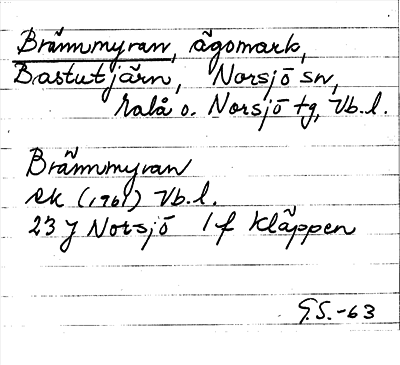 Brännmyran, ägomark,
Bastutjärn, Norsjö sn,
Malå o. Norsjö tg, Vb.l.
Brännmyran
ek (1961) Vb.l.
23 J Norsjö 1 f Kläppen
G.S.-63